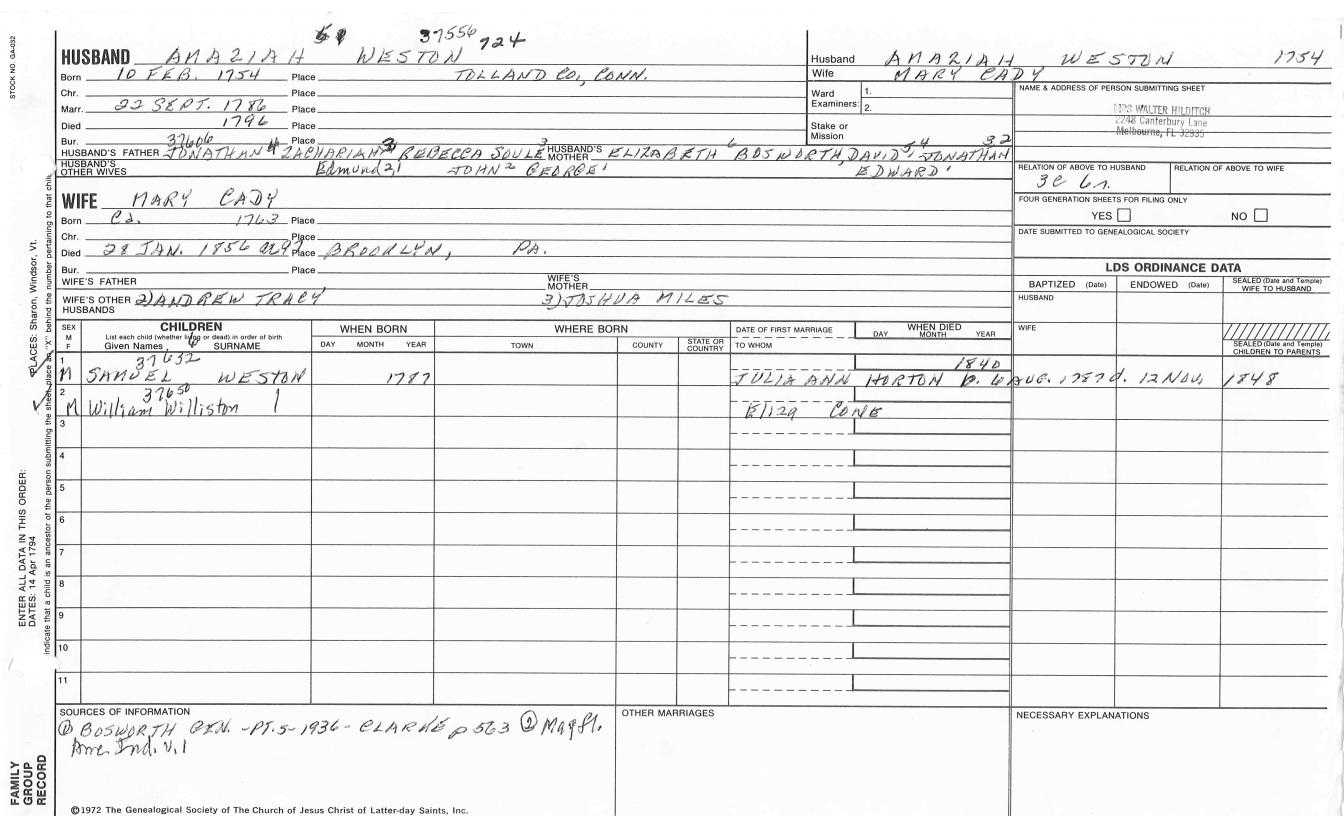 STOCK NO. GA-032
37556 724
HUSBAND AMAZIAH WESTON
Born 10 FEB. 1754 Place TOLLAND CO, CONN.
Chr. Place
Marr. 22 SEPT. 1786 Place
Died 1796 Place
Bur. Place
37606 3 6 54 32
HUSBAND'S FATHER JONATHAN 4 ZACHARIAH 3 REBECCA SOULE HUSBAND'S MOTHER ELIZABETH BOSWORTH, DAVID, JONATHAN
HUSBAND'S OTHER WIVES Edmund 2 1 JOHN 2 GEORGE 1 EDWARD 1
Husband AMAZIAH WESTON 1754
Wife MARY CADY
Ward Examiners: 1.
2.
Stake or Mission
NAME & ADDRESS OF PERSON SUBMITTING SHEET
MRS WALTER HILDITCH
2248 Canterbury Lane
Melbourne, FL 32935
RELATION OF ABOVE TO HUSBAND
3c 6r.
RELATION OF ABOVE TO WIFE
FOUR GENERATION SHEETS FOR FILING ONLY
YES NO
DATE SUBMITTED TO GENEALOGICAL SOCIETY
WIFE MARY CADY
Born Ca. 1763 Place
Chr. Place
Died 28 JAN. 1856 a92 Place BROOKLYN, PA.
Bur. Place
WIFE'S FATHER WIFE'S MOTHER
WIFE'S OTHER HUSBANDS 2) ANDREW TRACY 3) JOSHUA MILES
LDS ORDINANCE DATA
BAPTIZED (Date) ENDOWED (Date) SEALED (Date and Temple) WIFE TO HUSBAND
HUSBAND
WIFE
SEALED (Date and Temple) CHILDREN TO PARENTS
SEX M F
CHILDREN
List each child (whether living or dead) in order of birth
Given Names SURNAME
WHEN BORN
DAY MONTH YEAR
WHERE BORN
TOWN COUNTY STATE OR COUNTRY
DATE OF FIRST MARRIAGE
TO WHOM
WHEN DIED
DAY MONTH YEAR
1 37652 1840
M SAMUEL WESTON 1787 JULIA ANN HORTON b. 6 AUG. 1787 d. 12 NOV, 1848
2 37650
M William Williston Eliza CONE
3
4
5
6
7
8
9
10
11
SOURCES OF INFORMATION
① BOSWORTH GEN. -PT.5-1936- CLARKE p 563 ② Mayfl.
Ind. V.1
OTHER MARRIAGES
NECESSARY EXPLANATIONS
©1972 The Genealogical Society of The Church of Jesus Christ of Latter-day Saints, Inc.
FAMILY GROUP RECORD
ENTER ALL DATA IN THIS ORDER:
DATES: 14 Apr 1794
PLACES: Sharon, Windsor, Vt.
indicate that a child is an ancestor of the person submitting the sheet, place an "X" behind the number pertaining to that child.